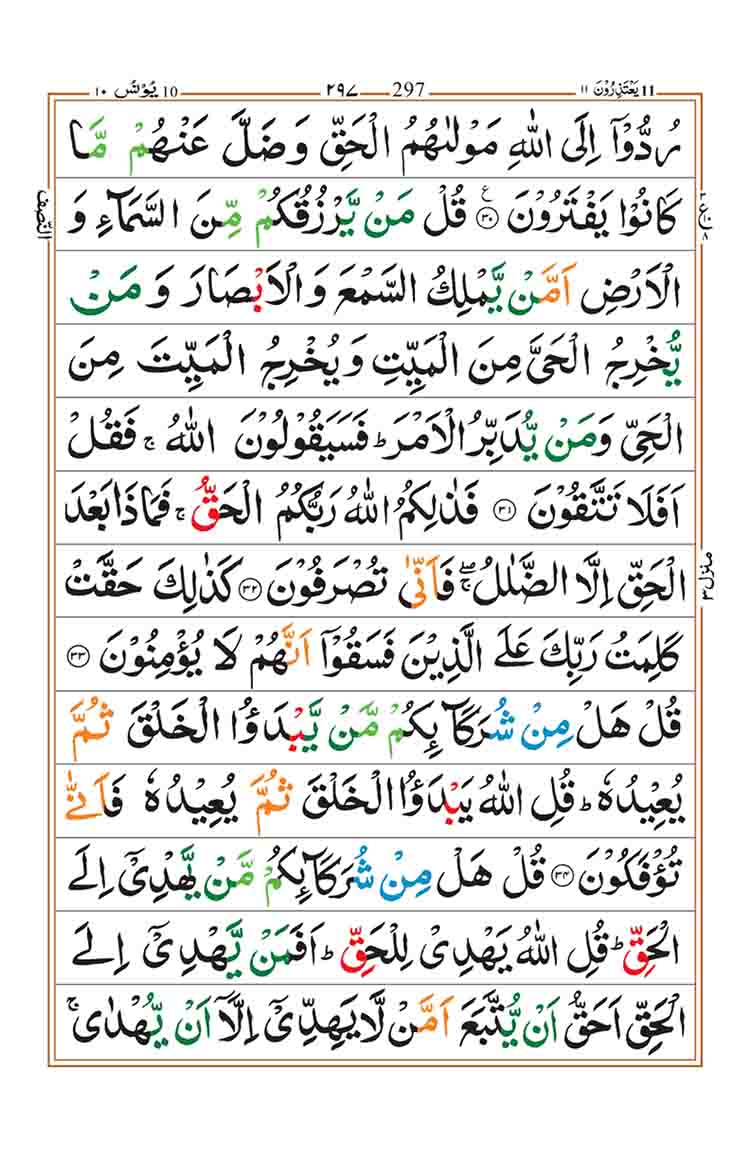 11 يَعْتَذِرُوْنَ ١١ 297 ٢٩٧ 10 يُوْنُسَ ١٠
رُدُّوْۤا اِلَى اللّٰهِ مَوْلٰىهُمُ الْحَقِّ وَضَلَّ عَنْهُمْ مَّا
كَانُوْا يَفْتَرُوْنَ ﴿۳۰﴾ ع قُلْ مَنْ يَّرْزُقُكُمْ مِّنَ السَّمَآءِ وَ
النّصف
الْاَرْضِ اَمَّنْ يَّمْلِكُ السَّمْعَ وَالْاَبْصَارَ وَ مَنْ
يُّخْرِجُ الْحَیَّ مِنَ الْمَيِّتِ وَيُخْرِجُ الْمَيِّتَ مِنَ
الْحَیِّ وَمَنْ يُّدَبِّرُ الْاَمْرَ ؕ فَسَيَقُوْلُوْنَ اللّٰهُ ۚ فَقُلْ
اَفَلَا تَتَّقُوْنَ ﴿۳۱﴾ فَذٰلِكُمُ اللّٰهُ رَبُّكُمُ الْحَقُّ ۚ فَمَاذَا بَعْدَ
الْحَقِّ اِلَّا الضَّلٰلُ ۖۚ فَاَنّٰى تُصْرَفُوْنَ ﴿۳۲﴾ كَذٰلِكَ حَقَّتْ
منزل ٣
كَلِمَتُ رَبِّكَ عَلَى الَّذِيْنَ فَسَقُوْۤا اَنَّهُمْ لَا يُؤْمِنُوْنَ ﴿۳۳﴾
قُلْ هَلْ مِنْ شُرَكَآئِكُمْ مَّنْ يَّبْدَؤُا الْخَلْقَ ثُمَّ
يُعِيْدُهٗ ؕ قُلِ اللّٰهُ يَبْدَؤُا الْخَلْقَ ثُمَّ يُعِيْدُهٗ فَاَنّٰى
تُؤْفَكُوْنَ ﴿۳۴﴾ قُلْ هَلْ مِنْ شُرَكَآئِكُمْ مَّنْ يَّهْدِیْۤ اِلَى
الْحَقِّ ؕ قُلِ اللّٰهُ يَهْدِیْ لِلْحَقِّ ؕ اَفَمَنْ يَّهْدِیْۤ اِلَى
الْحَقِّ اَحَقُّ اَنْ يُّتَّبَعَ اَمَّنْ لَّا يَهِدِّیْۤ اِلَّاۤ اَنْ يُّهْدٰى ۚ